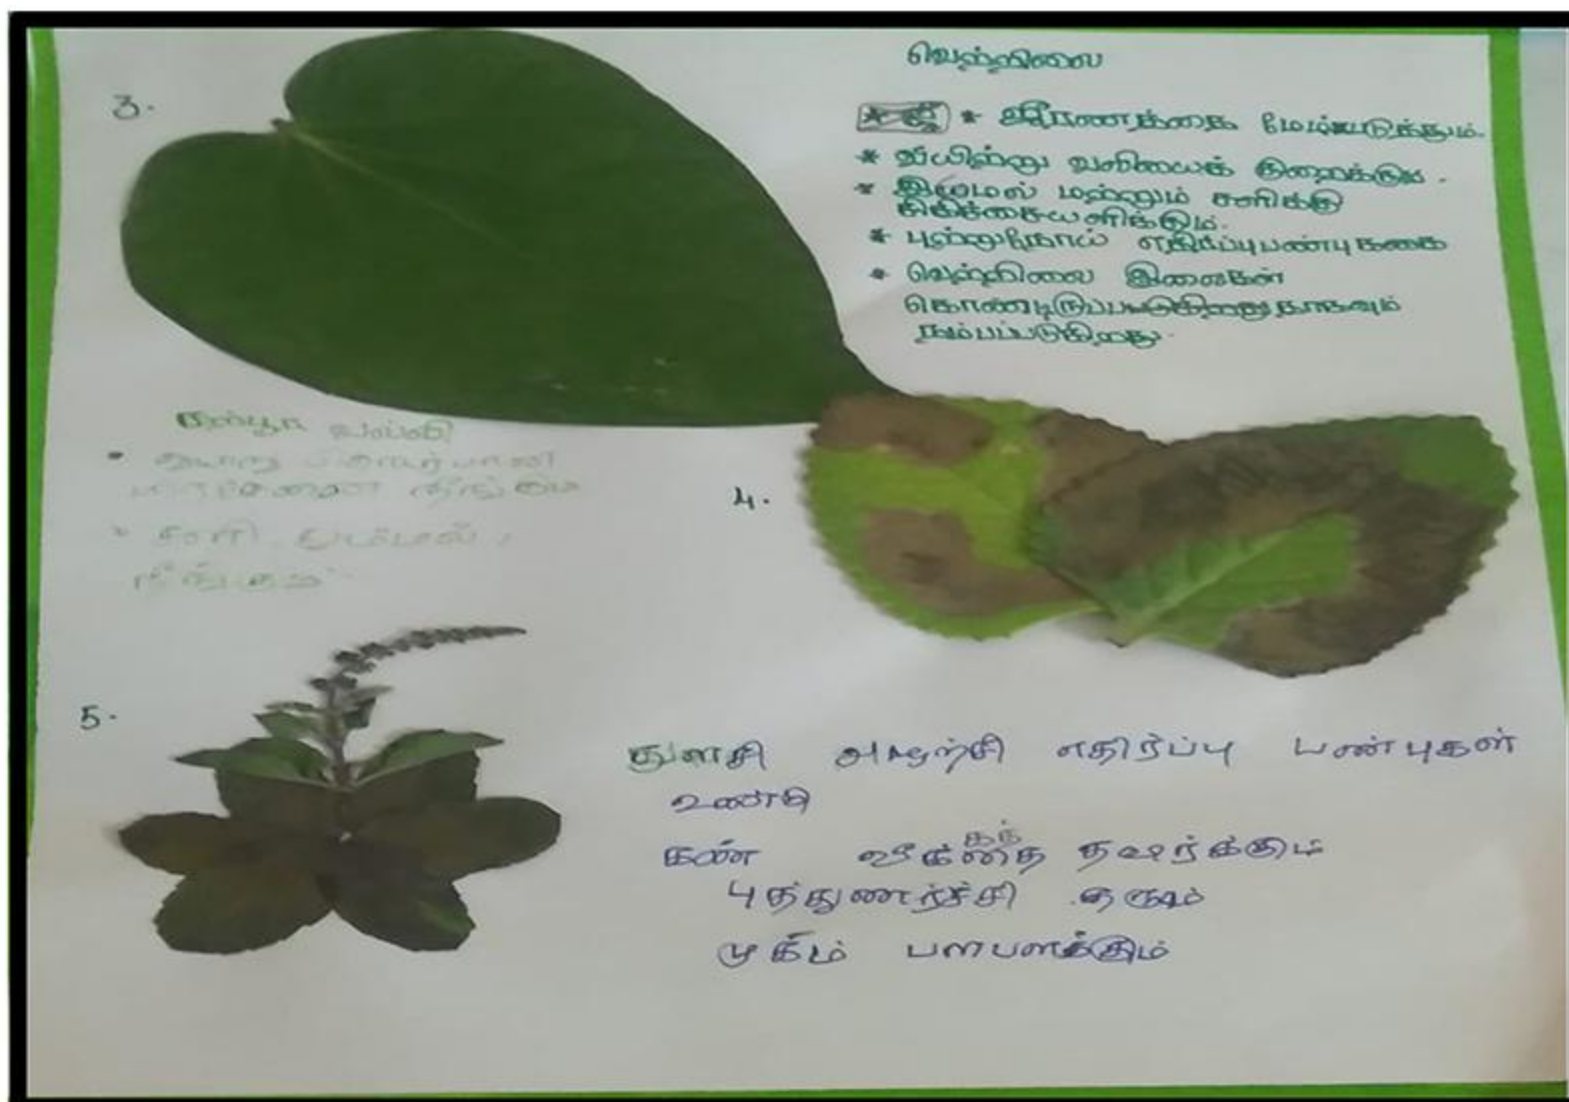 3.
வெற்றிலை
* ஜீரணத்தை மேம்படுத்தும்.
* வயிற்று வலியைக் குறைக்கும்.
* இருமல் மற்றும் சளிக்கு
சிகிச்சையளிக்கும்.
* புற்றுநோய் எதிர்ப்பு பண்புகளை
* வெற்றிலை இலைகள்
கொண்டிருப்பதாகவும்
நம்பப்படுகிறது.
கற்பூர வல்லி
நீங்கும்
சளி தும்மல்,
நீங்கும்
4.
5.
துளசி அழற்சி எதிர்ப்பு பண்புகள்
உண்டு
கண் வீக்கத்தை தவிர்க்கும்
புத்துணர்ச்சி தரும்
முகம் பளபளக்கும்